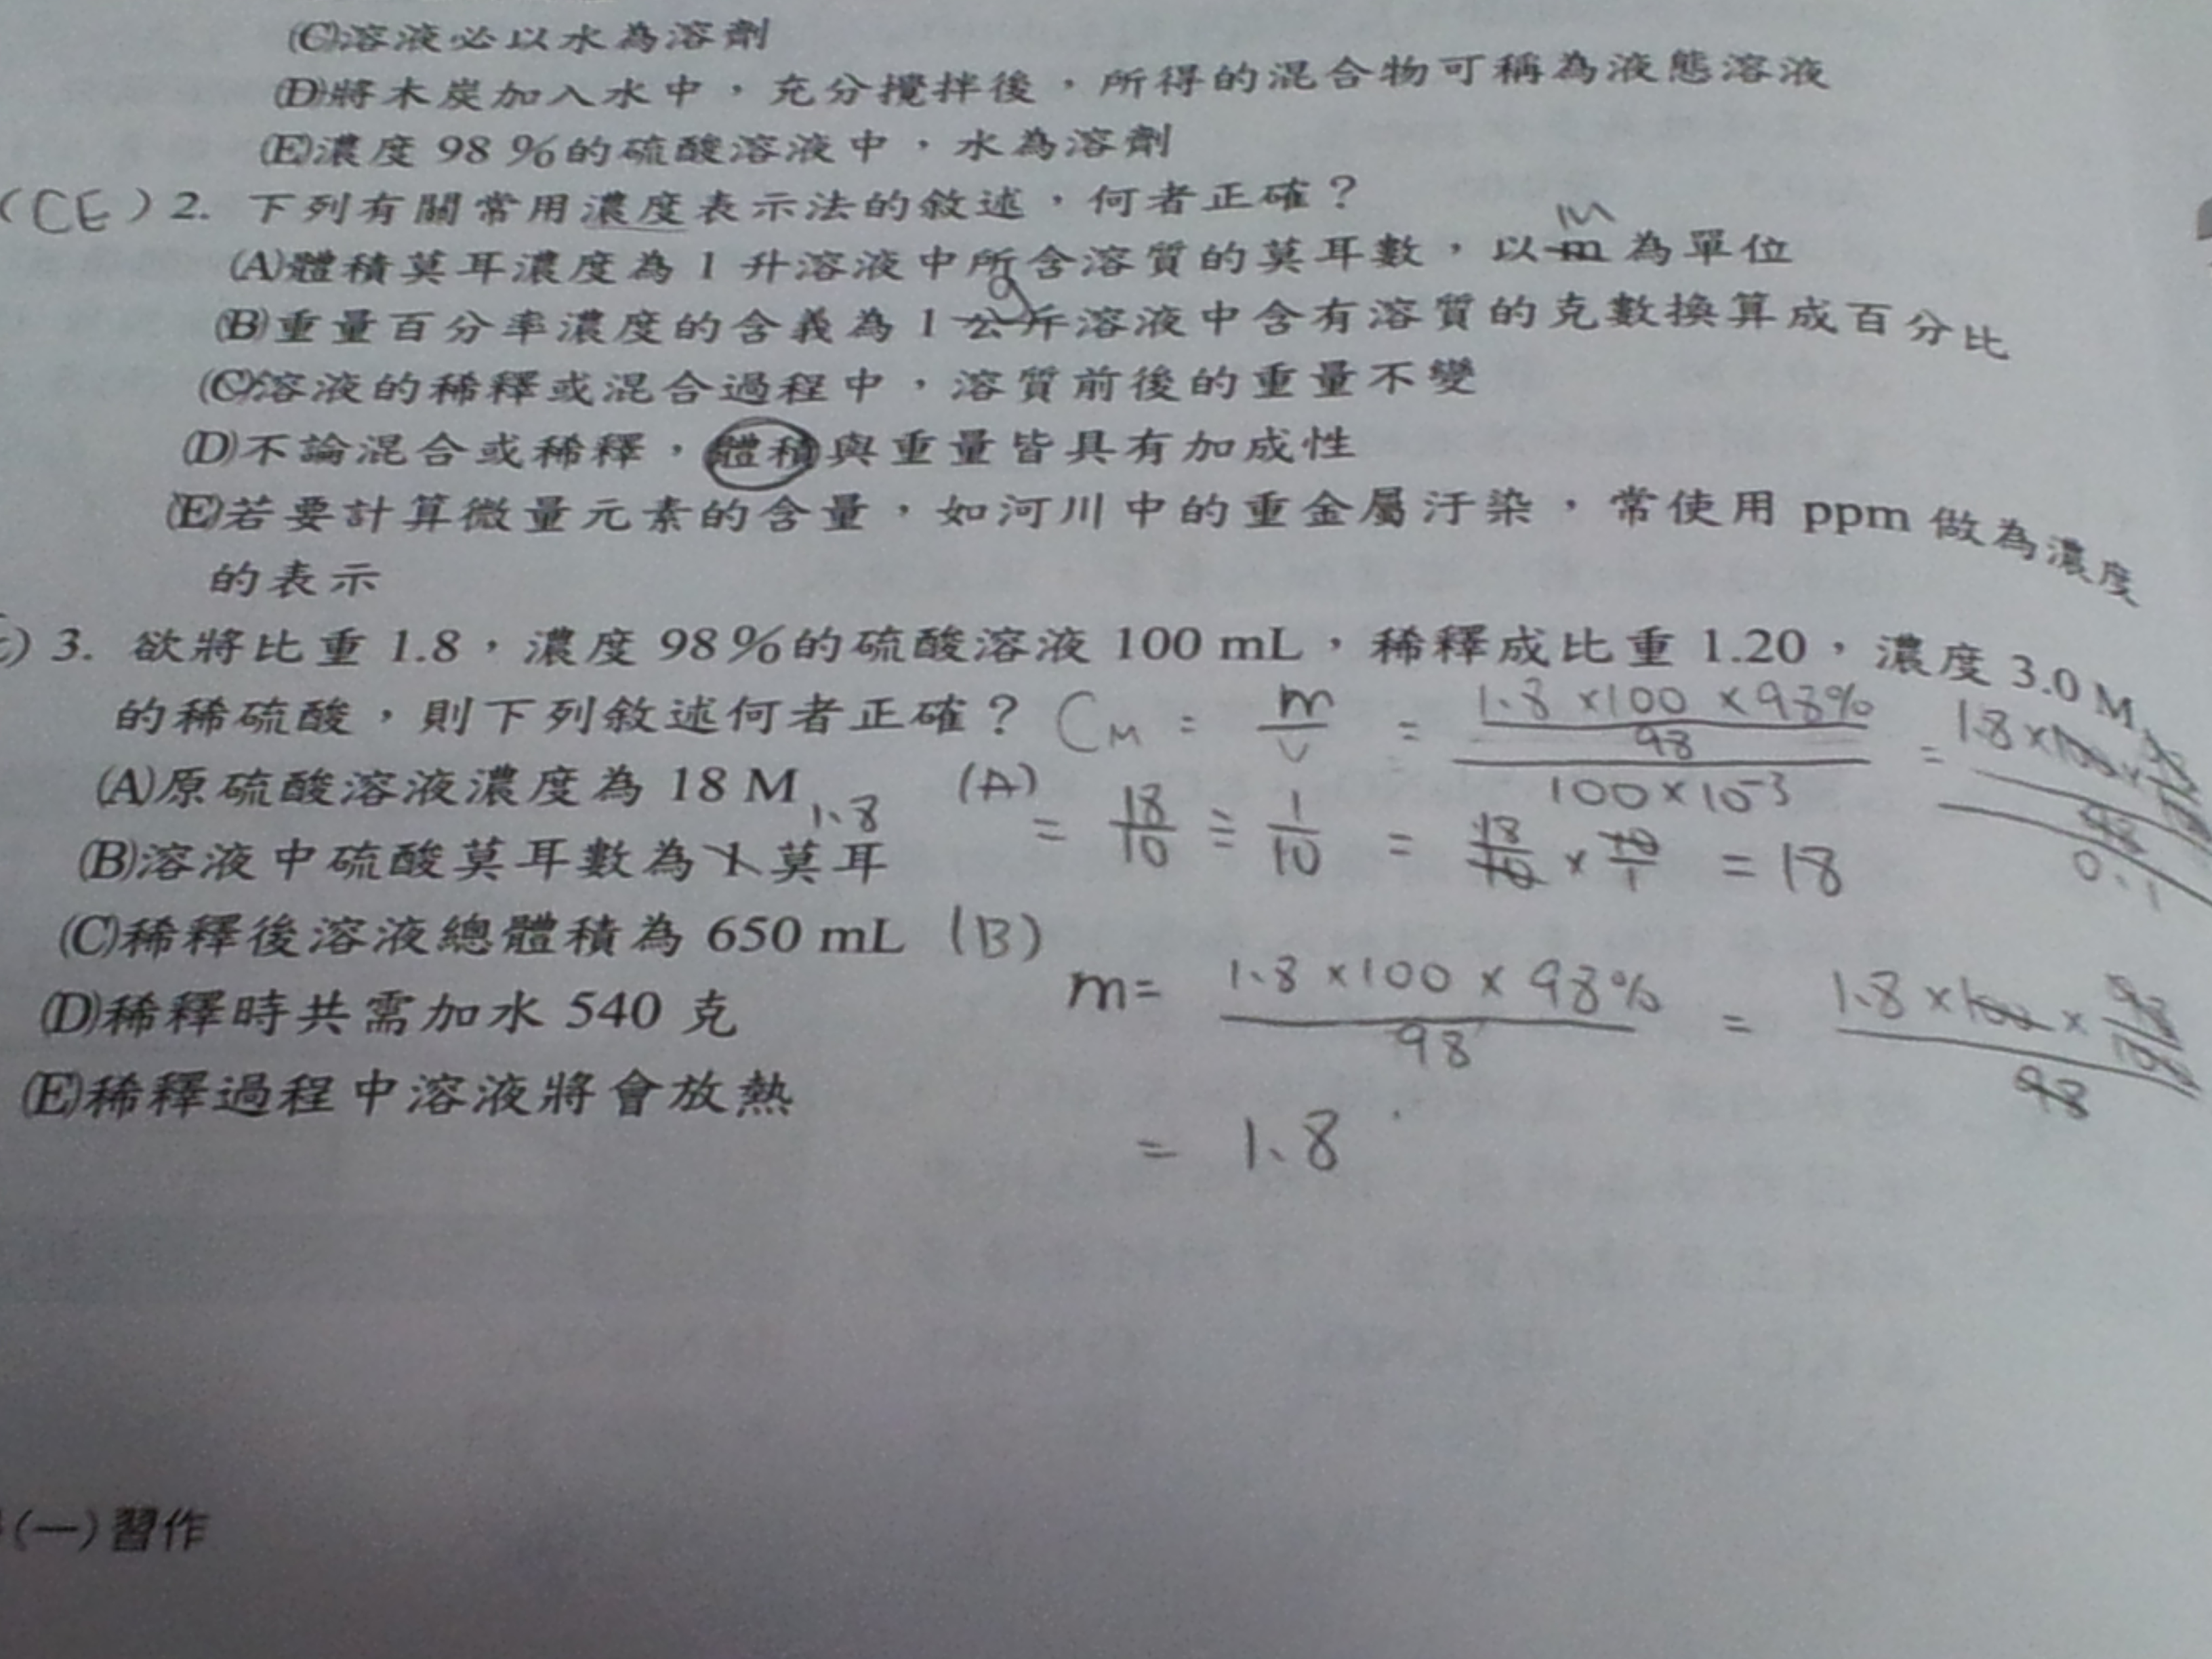 (C)溶液必以水為溶劑
(D)將木炭加入水中，充分攪拌後，所得的混合物可稱為液態溶液
(E)濃度 98 %的硫酸溶液中，水為溶劑
(CE) 2. 下列有關常用濃度表示法的敘述，何者正確？
M
(A)體積莫耳濃度為 1 升溶液中所含溶質的莫耳數，以 m 為單位
g
(B)重量百分率濃度的含義為 1 公斤溶液中含有溶質的克數換算成百分比
(C)溶液的稀釋或混合過程中，溶質前後的重量不變
(D)不論混合或稀釋，體積與重量皆具有加成性
(E)若要計算微量元素的含量，如河川中的重金屬汙染，常使用 ppm 做為濃度
的表示
) 3. 欲將比重 1.8，濃度 98%的硫酸溶液 100 mL，稀釋成比重 1.20，濃度 3.0 M
的稀硫酸，則下列敘述何者正確？
(A)原硫酸溶液濃度為 18 M
1.8
(B)溶液中硫酸莫耳數為 1 莫耳
(C)稀釋後溶液總體積為 650 mL
(D)稀釋時共需加水 540 克
(E)稀釋過程中溶液將會放熱
CM = m/v = 1.8 ×100 ×98% / 98 / 100×10-3 = 1.8×100× 98/100 / 98 / 0.1
(A) = 18/10 ÷ 1/10 = 18/10 × 10/1 = 18
(B)
m= 1.8 ×100 × 98% / 98 = 1.8 ×100 × 98/100 / 98
= 1.8
(一)習作